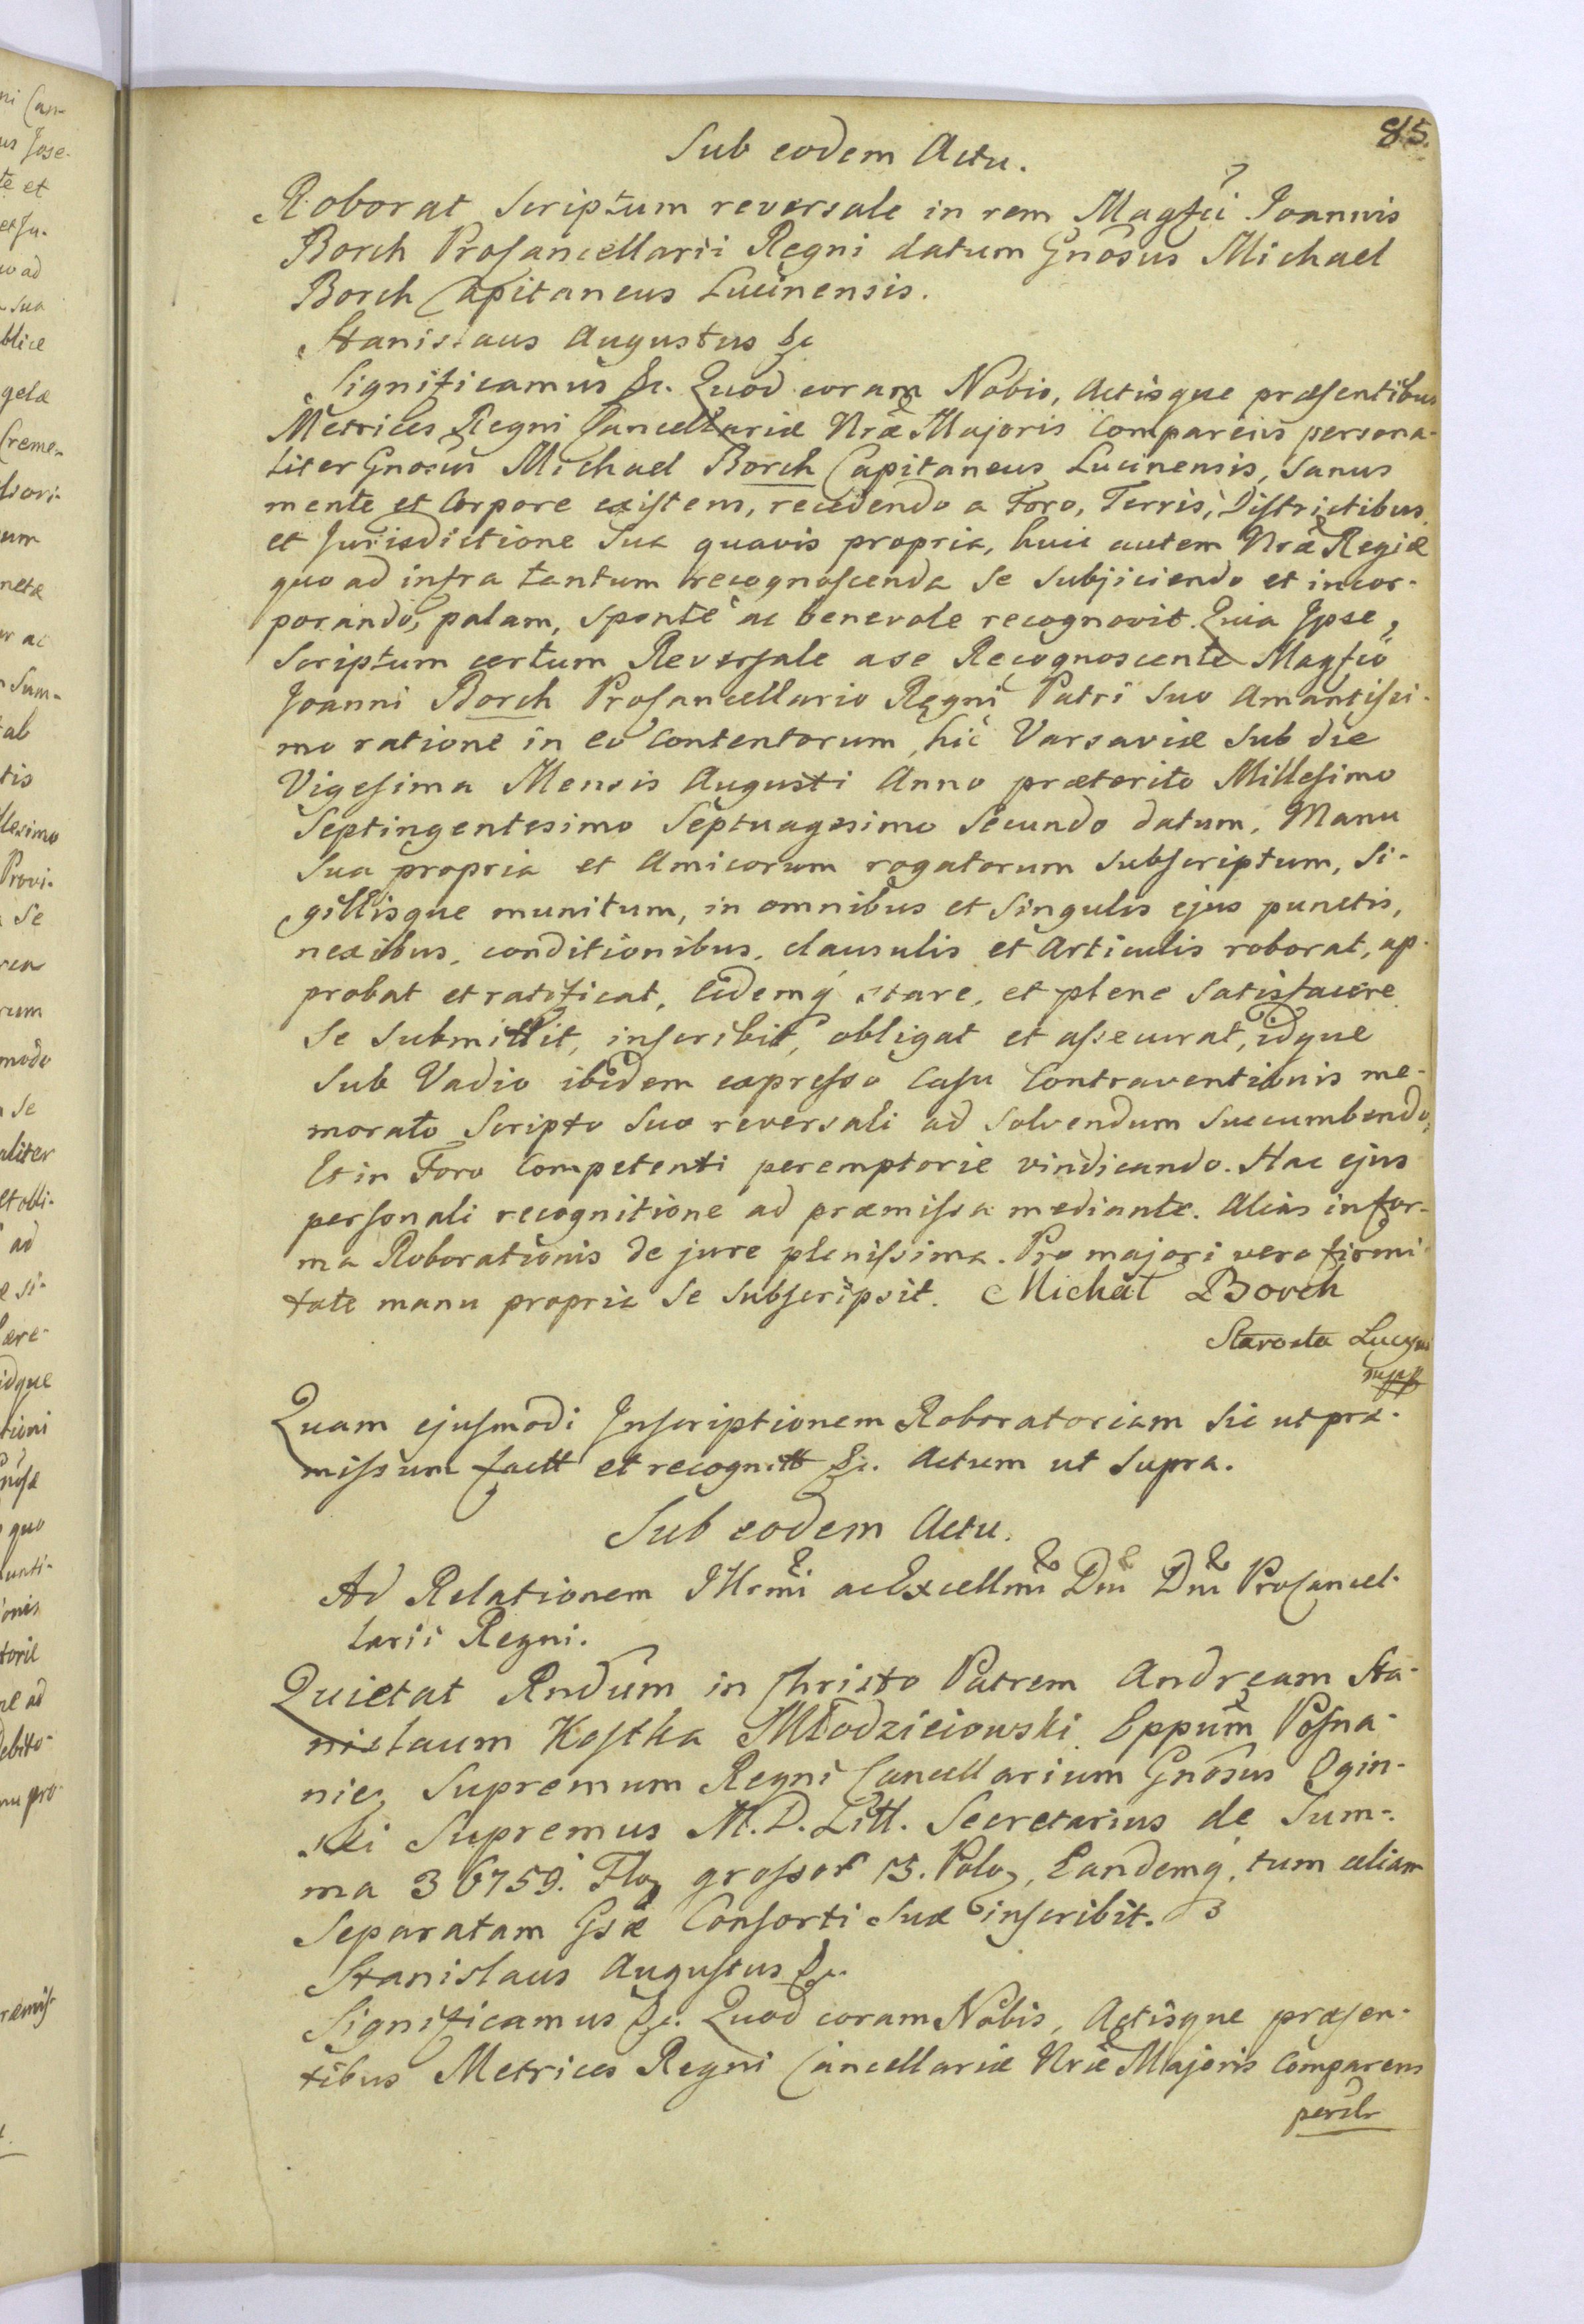 85.
Sub eodem Actu.
Roborat Scriptum reversale in rem Magfci Joannis
Borch Procancellarii Regni datum Gnosus Michael
Borch Capitaneus Lucinensis.
Stanislaus Augustus &c
Significamus &c. Quod coram Nobis, Actisque præsentibus
Metrices Regni Cancellariæ Nræ Majoris Comparens persona-
liter Gnosus Michael Borch Capitaneus Lucinensis, Sanus
mente et Corpore existens, recedendo a Foro, Terris, Districtibus
et Jurisdictione Sua quavis propria, huic autem Nræ Regiæ
quo ad infra tantum recognoscenda Se Subjiciendo et incor-
porando, palam, sponte ac benevole recognovit. Quia Ipse
Scriptum certum Reversale a se Recognoscente Magfco
Joanni Borch Procancellario Regni Patri Suo Amantissi-
mo ratione in eo Contentorum, hic Varsaviæ Sub die
Vigesima Mensis Augusti Anno præterito Millesimo
Septingentesimo Septuagesimo Secundo datum, Manu
Sua propria et Amicorum rogatorum Subscriptum, Si-
gillisque munitum, in omnibus et Singulis ejus punctis,
nexibus, conditionibus, clausulis et Articulis roborat, ap-
probat et ratificat, Eidemq stare, et plene Satisfacere
Se Submittit, inscribit, obligat et assecurat, idque
Sub Vadio ibidem expresso Casu Contraventionis me-
morato Scripto Suo reversali ad Solvendum Succumbendo,
Et in Foro Competenti peremptorie vindicando. Hac ejus
personali recognitione ad præmissa mediante. Alias in for-
ma Roborationis de jure plenissima. Pro majori vero firmi-
tate manu propria Se Subscripsit. Michał Borch
Starosta Lucyni
mpp
Quam ejusmodi Inscriptionem Roboratoriam Sic ut præ-
missum factt et recognitt &c. Actum ut Supra.
Sub eodem Actu.
Ad Relationem Illrmi ac Excellmi Dni Dni Procancel-
larii Regni.
Quietat Rndum in Christo Patrem Andream Sta-
nislaum Kostka Młodzieiowski Eppum Posna-
nie, Supremum Regni Cancellarium Gnosus Ogin-
ski Supremus M. D. Litt. Secretarius de Sum-
ma 36759. Flo, grossor 15. Polo, Eandemq, tum aliam
Separatam Gsæ Consorti Suæ inscribit.
Stanislaus Augustus &c.
Significamus &c. Quod coram Nobis, Actisque præsen-
tibus Metrices Regni Cancellariæ Nræ Majoris Comparens
persnlr